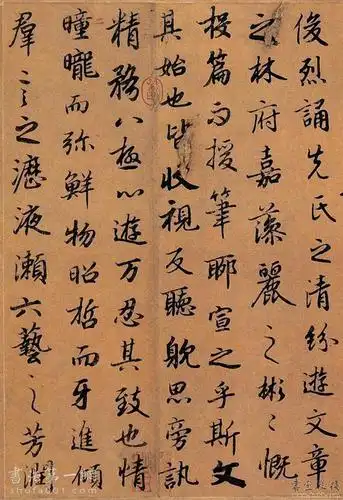 俊烈誦先氏之清紛遊文章
之林府嘉藻麗之彬〻慨
投篇而援筆聊宣之乎斯文
其始也皆收視反聽躭思旁訊
精務八極心遊万忍其致也情
曈曨而弥鮮物昭晢而牙進傾
羣言之瀝液漱六藝之芳潤